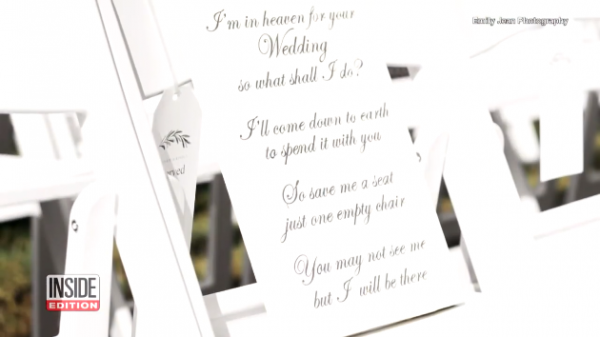 Emily Jean Photography
I'm in heaven for your
Wedding
so what shall I do?
I'll come down to earth
to spend it with you
So save me a seat
just one empty chair
You may not see me
but I will be there
INSIDE
EDITION